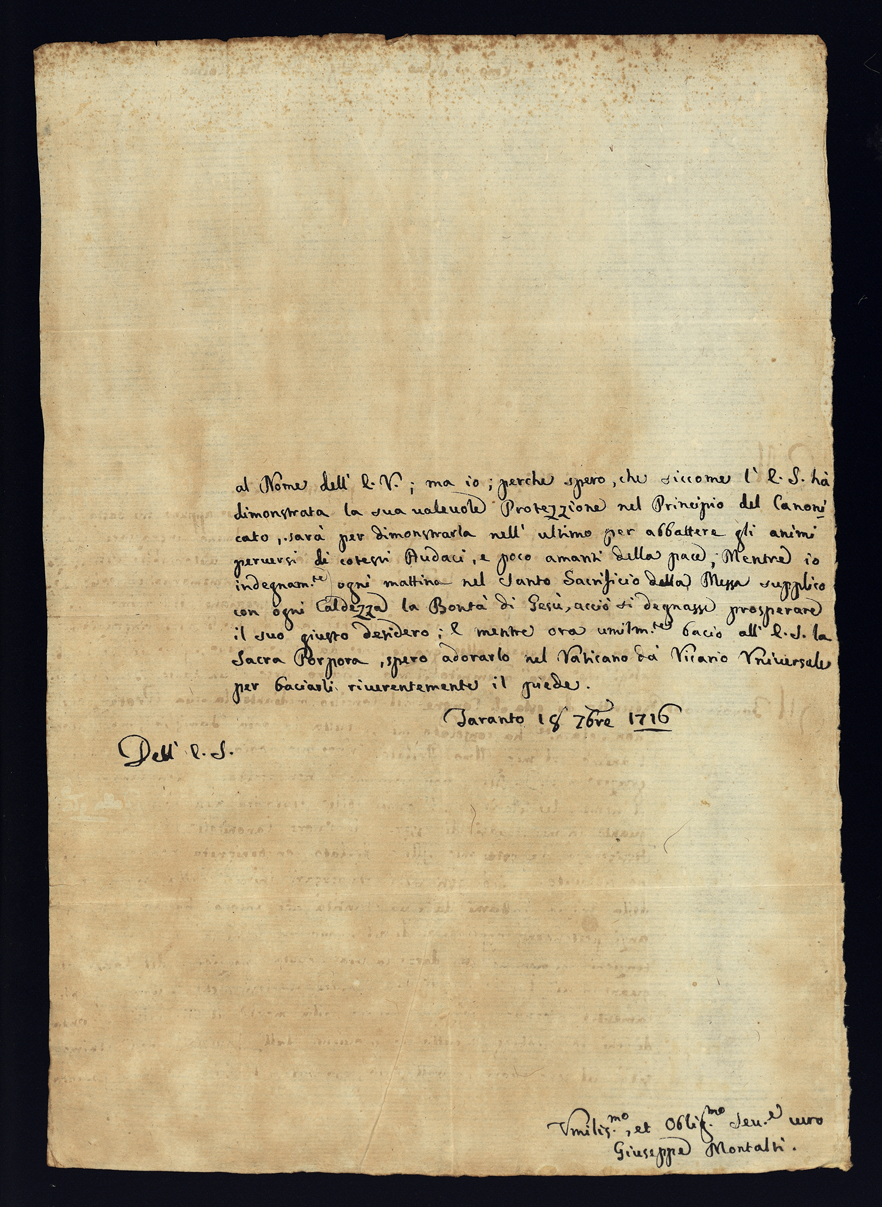 al Nome dell' E. V.; ma io; perche spero, che siccome l' E. S. hà
dimonstrata la sua ualeuole Protezzione nel Principio del Canoni
cato, sarà per dimonstrarla nell' ultimo per abbattere gli animi
peruersi di cotesti Audaci, e poco amanti della pace; Mentre io
indegnam.te ogni mattina nel Santo Sacrificio della Messa supplico
con ogni Caldezza la Bontà di Gesù, acciò si degnasse prosperare
il suo giusto desidero; E mentre ora umilm.te bacio all' E. S. la
Sacra Porpora, spero adorarlo nel Vaticano dà Vicario Vniuersale
per baciarli riuerentemente il piede.
Taranto 18 7bre 1716
Dell' E. S.
Vmilis.mo, et Oblig.mo Seru.e uero
Giuseppe Montalti.